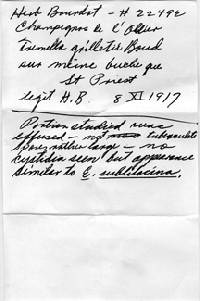 Herb Bourdot - # 22492
Champignons de l'Allier
Tremella Grilletii Boud
sur même buche que
St Priest
legit H.B. 8 XI 1917
Portion studied was
effused - not
Spores rather large - no
cystidia seen but appearance
similar to E. sublilacina.